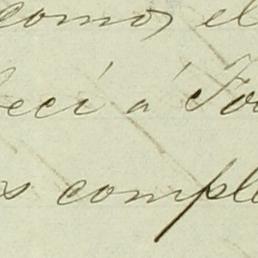 como, el
eci á To
s comple